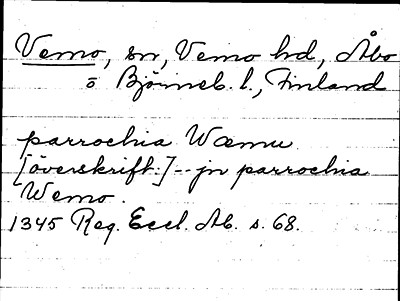 Vemo, sn, Vemo hd, Åbo
o Björneb. l., Finland
parrochia Wœmu
[överskrift:] -- jn parrochia
Wemo.
1345 Reg. Eccl. Ab. s. 68.